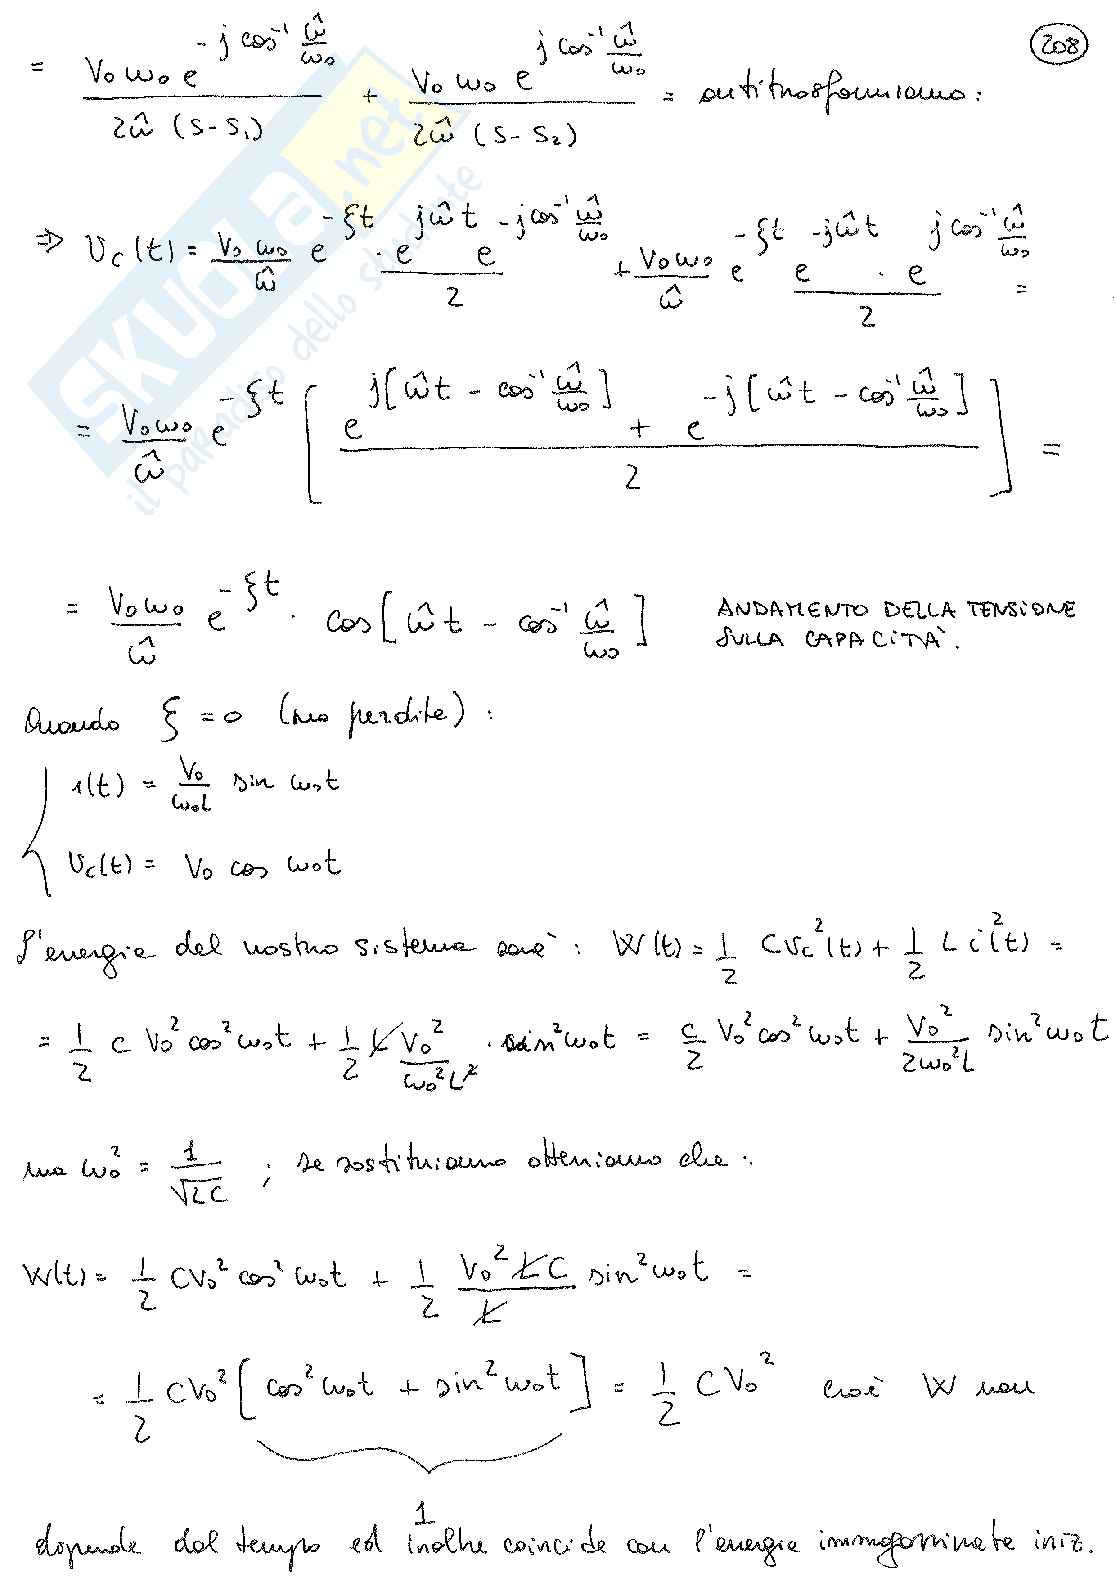 208
= V₀ω₀ e^(-j cos⁻¹ ω̂/ω₀) / 2ω̂ (S-S₁) + V₀ω₀ e^(j cos⁻¹ ω̂/ω₀) / 2ω̂ (S-S₂) = antitrasformiamo:
⇒ Uc(t) = V₀ω₀/ω̂ e^(-ξt) · e^(jω̂t) e^(-jcos⁻¹ ω̂/ω₀) / 2 + V₀ω₀/ω̂ e^(-ξt) e^(-jω̂t) · e^(jcos⁻¹ ω̂/ω₀) / 2 =
= V₀ω₀/ω̂ e^(-ξt) [ e^(j[ω̂t - cos⁻¹ ω̂/ω₀]) + e^(-j[ω̂t - cos⁻¹ ω̂/ω₀]) / 2 ] =
= V₀ω₀/ω̂ e^(-ξt) · cos[ω̂t - cos⁻¹ ω̂/ω₀] ANDAMENTO DELLA TENSIONE
SULLA CAPACITÀ.
Quando ξ = 0 (no perdite) :
i(t) = V₀/ω₀L sin ω₀t
Uc(t) = V₀ cos ω₀t
L'energia del nostro sistema sarà : W(t) = 1/2 CVc²(t) + 1/2 L i²(t) =
= 1/2 C V₀² cos² ω₀t + 1/2 L V₀²/ω₀²L² · sin² ω₀t = C/2 V₀² cos² ω₀t + V₀²/2ω₀²L sin² ω₀t
ma ω₀² = 1/√LC ; se sostituiamo otteniamo che :
W(t) = 1/2 CV₀² cos² ω₀t + 1/2 V₀² LC/L sin² ω₀t =
= 1/2 CV₀² [cos² ω₀t + sin² ω₀t] = 1/2 CV₀² cioè W non
1
dipende dal tempo ed inoltre coincide con l'energia immagazzinata iniz.
SKUOLA.net
il paradiso dello studente